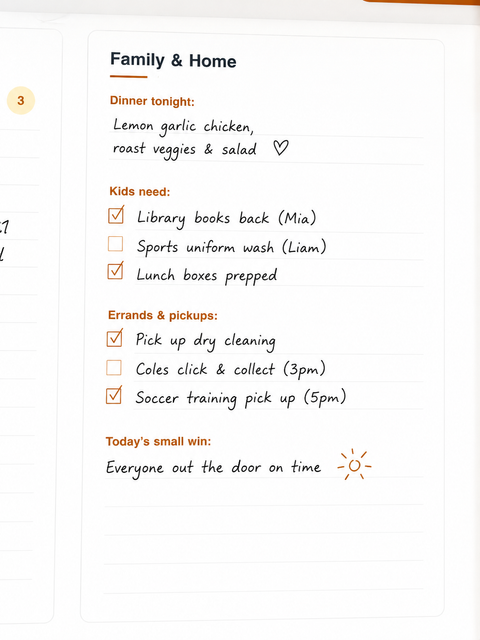 Family & Home
3
Dinner tonight:
Lemon garlic chicken,
roast veggies & salad
Kids need:
Library books back (Mia)
Sports uniform wash (Liam)
Lunch boxes prepped
Errands & pickups:
Pick up dry cleaning
Coles click & collect (3pm)
Soccer training pick up (5pm)
Today's small win:
Everyone out the door on time